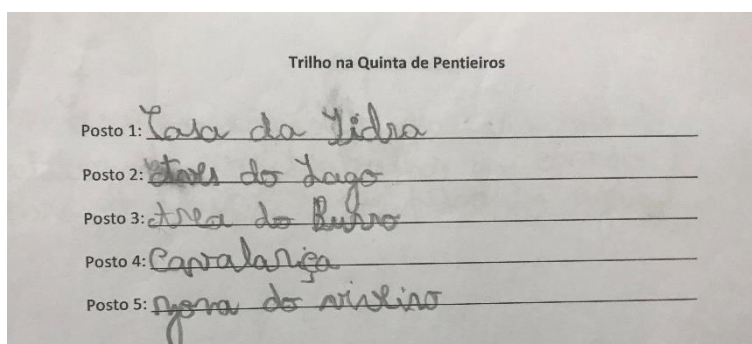 Trilho na Quinta de Pentieiros
Posto 1: Casa da Sidra
Posto 2: Aves do Lago
Posto 3: Area do Burro
Posto 4: Cavalariça
Posto 5: zona do viveiro